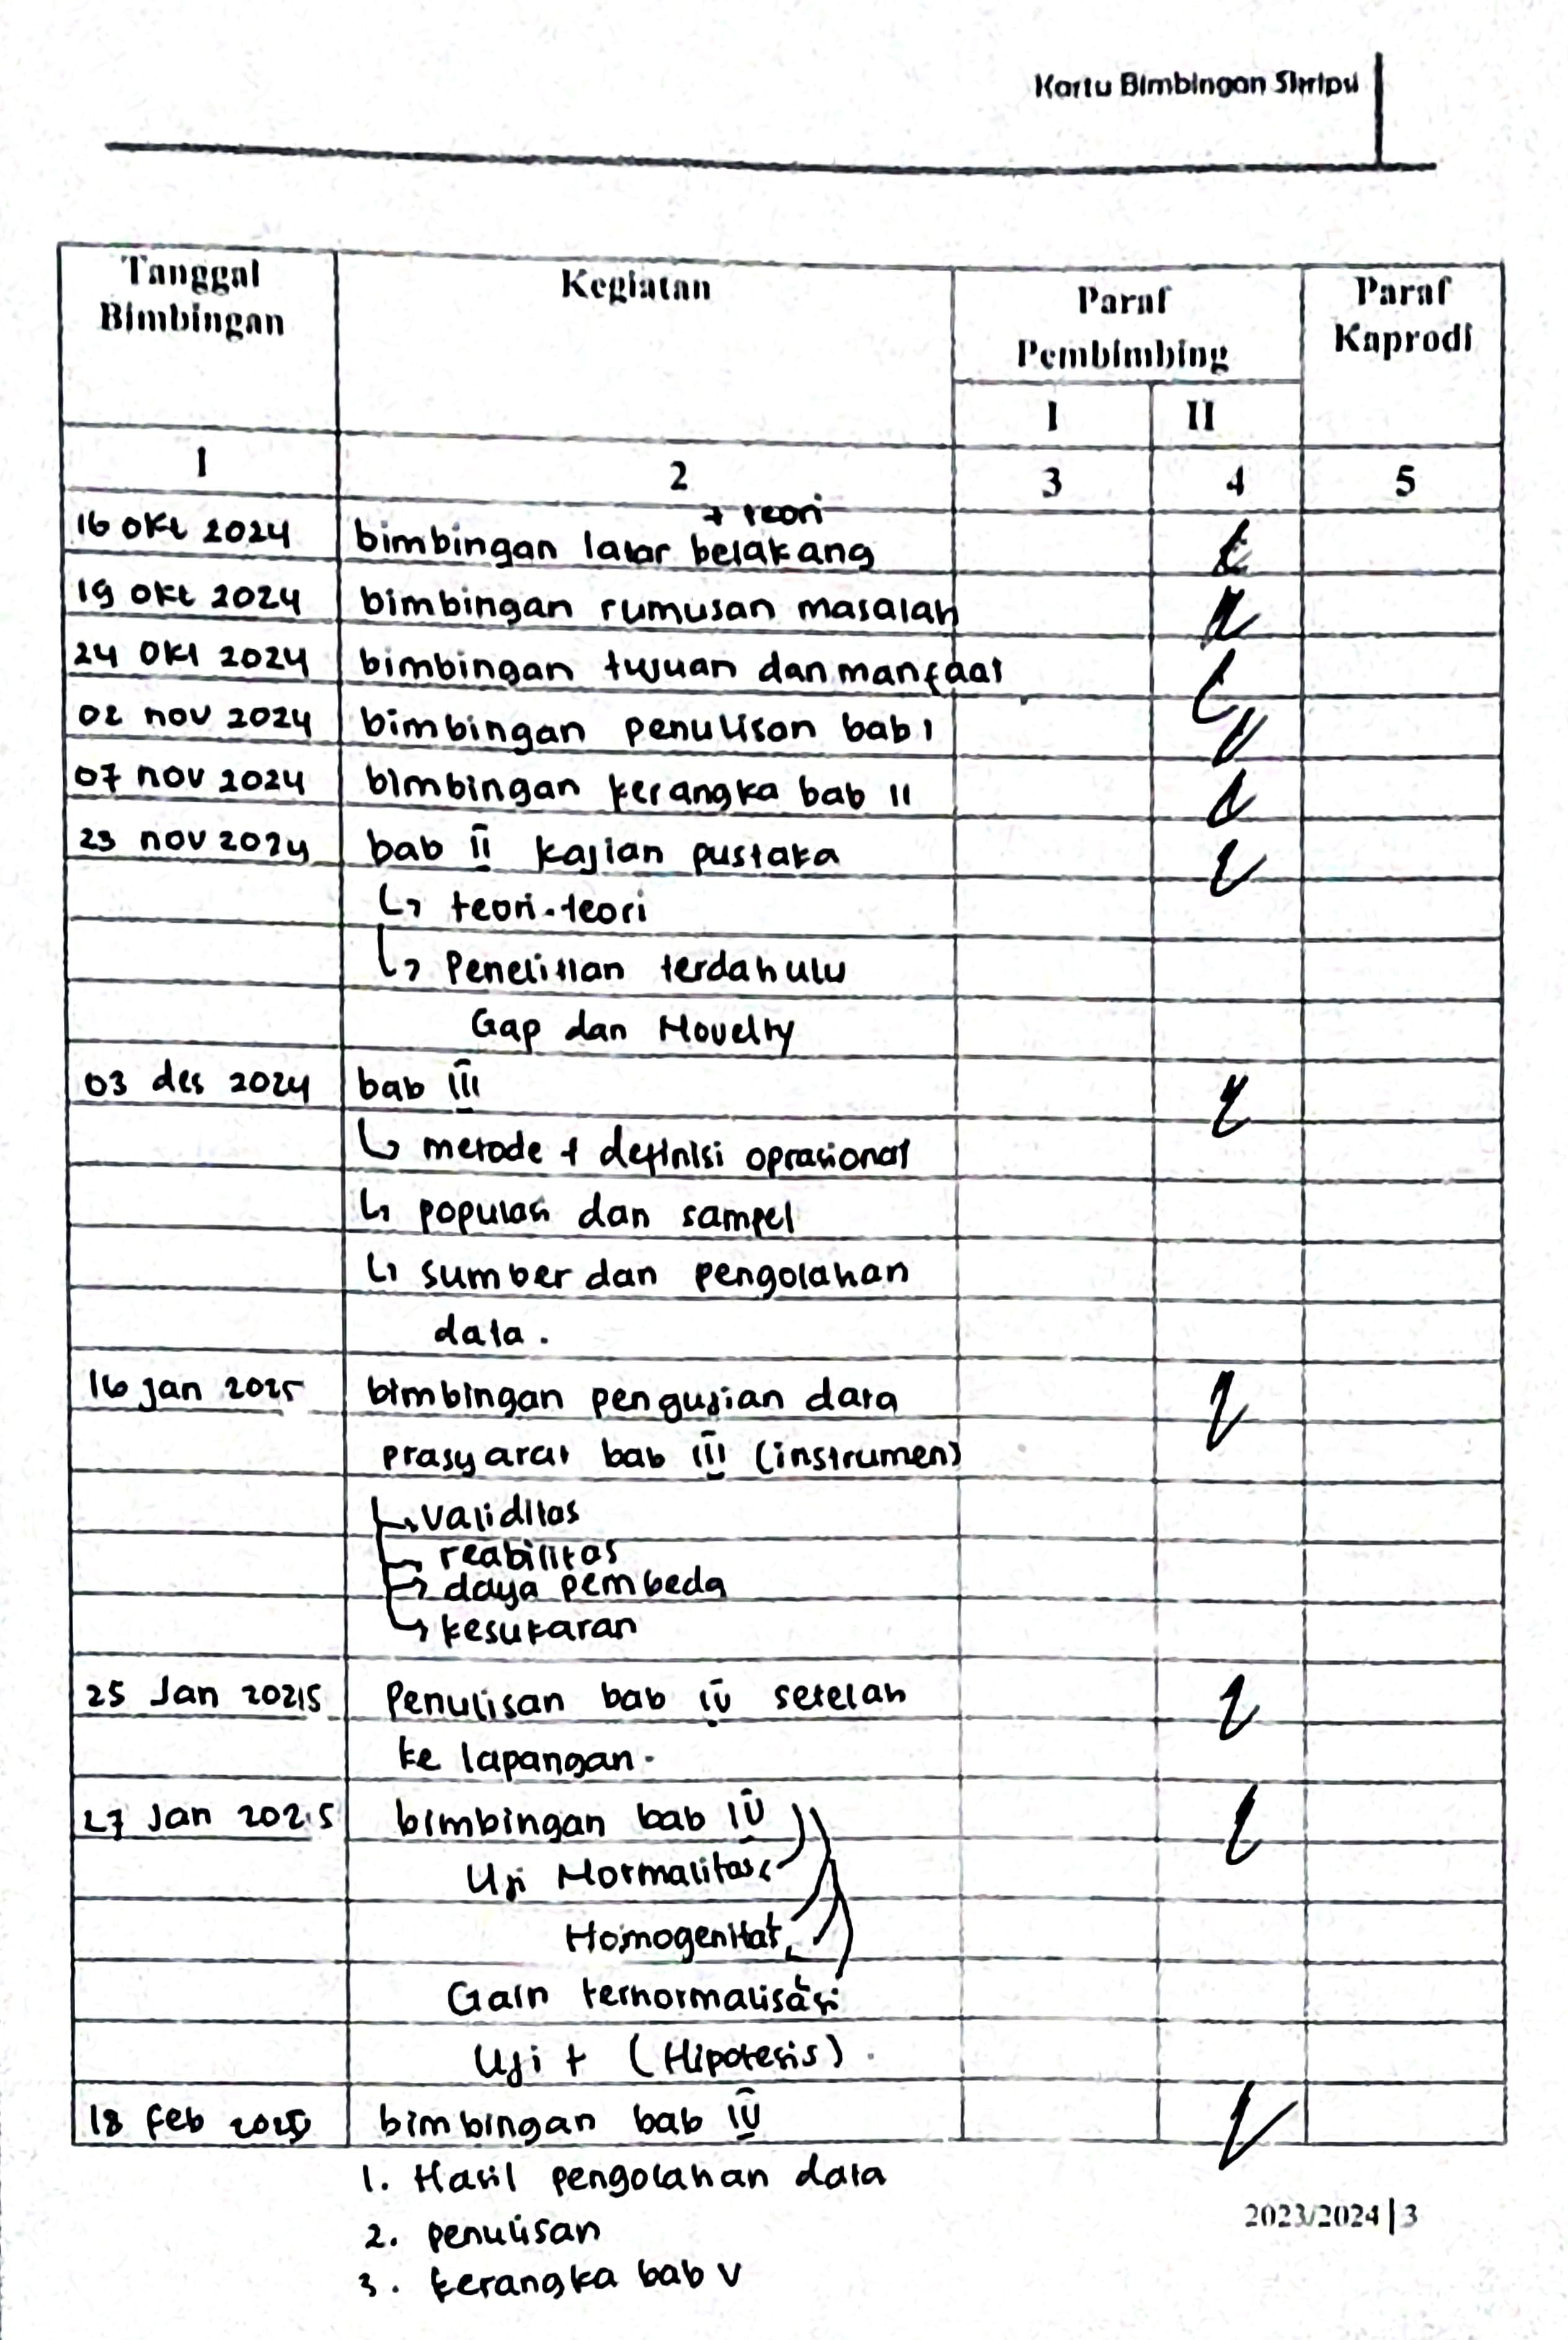 Kartu Bimbingan Skripsi
Tanggal Bimbingan
Kegiatan
Paraf Pembimbing
Paraf Kaprodi
I II
1 2 3 4 5
+ teori
16 okt 2024 bimbingan latar belakang
19 okt 2024 bimbingan rumusan masalah
24 okt 2024 bimbingan tujuan dan manfaat
02 nov 2024 bimbingan penulisan bab I
07 nov 2024 bimbingan kerangka bab II
23 nov 2024 bab II kajian pustaka
↳ teori-teori
↳ Penelitian terdahulu
Gap dan Novelty
03 des 2024 bab III
↳ metode + definisi oprasional
↳ populasi dan sampel
↳ sumber dan pengolahan
data.
16 jan 2025 bimbingan pengujian data
prasyarat bab III (instrumen)
↳ validitas
↳ reabilitas
↳ daya pembeda
↳ kesukaran
25 Jan 2025 Penulisan bab IV setelah
ke lapangan.
27 Jan 2025 bimbingan bab IV
Uji Normalitas
Homogenitat
Gain ternormalisasi
Uji t (Hipotesis)
18 Feb 2025 bimbingan bab IV
1. Hasil pengolahan data
2. penulisan
3. kerangka bab V
2023/2024|3